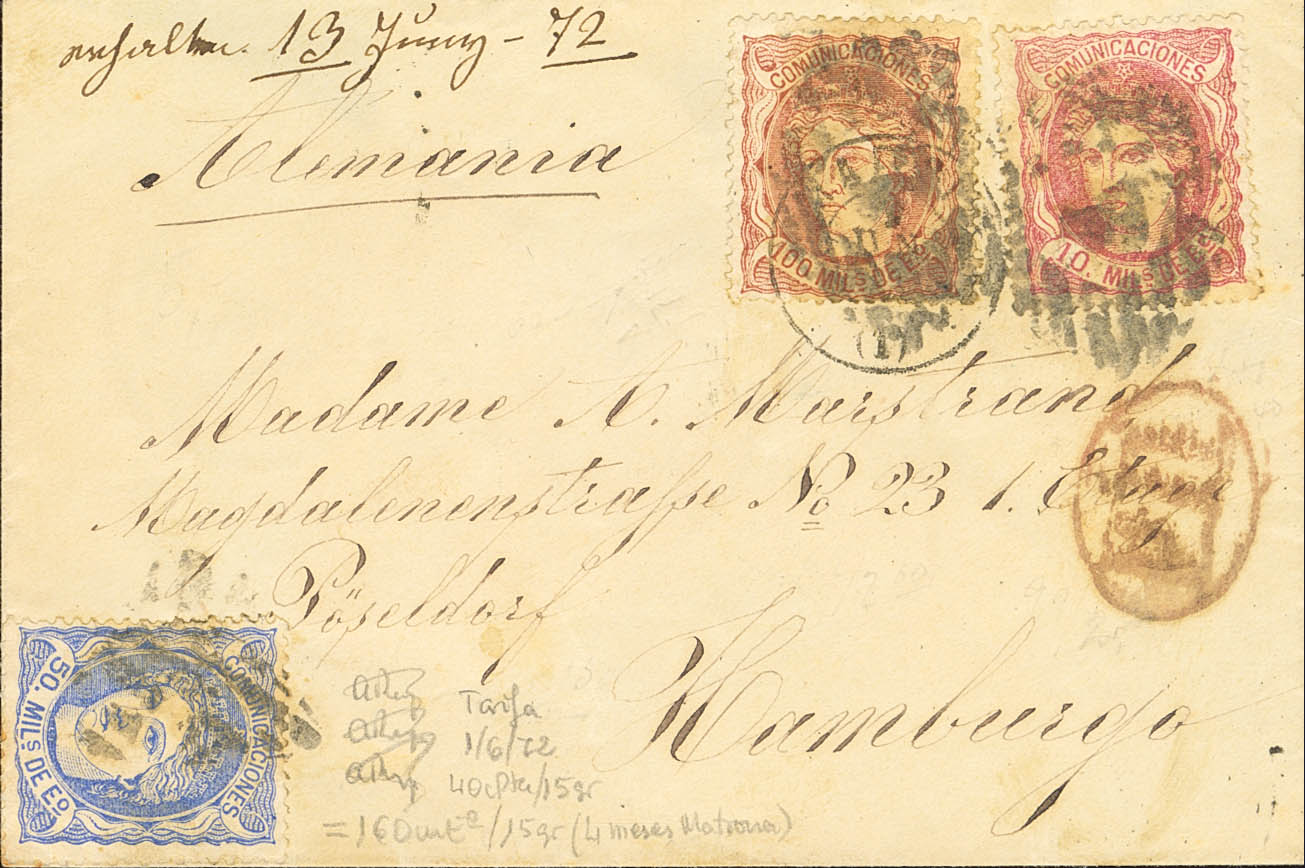 erhalten. 13 Juny - 72
Alemania
COMUNICACIONES
100. MILS. DE Eo.
COMUNICACIONES
10. MILS. DE Eo.
(1)
Madame A. Marstrand
Magdalenenstraſse No 23 1. Etage
Pöseldorf
Hamburgo
COMUNICACIONES
50. MILS. DE Eo.
Tarifa
1/6/72
40 cPta/15gr
= 160 m Eo/15gr (4 meses Matrona)